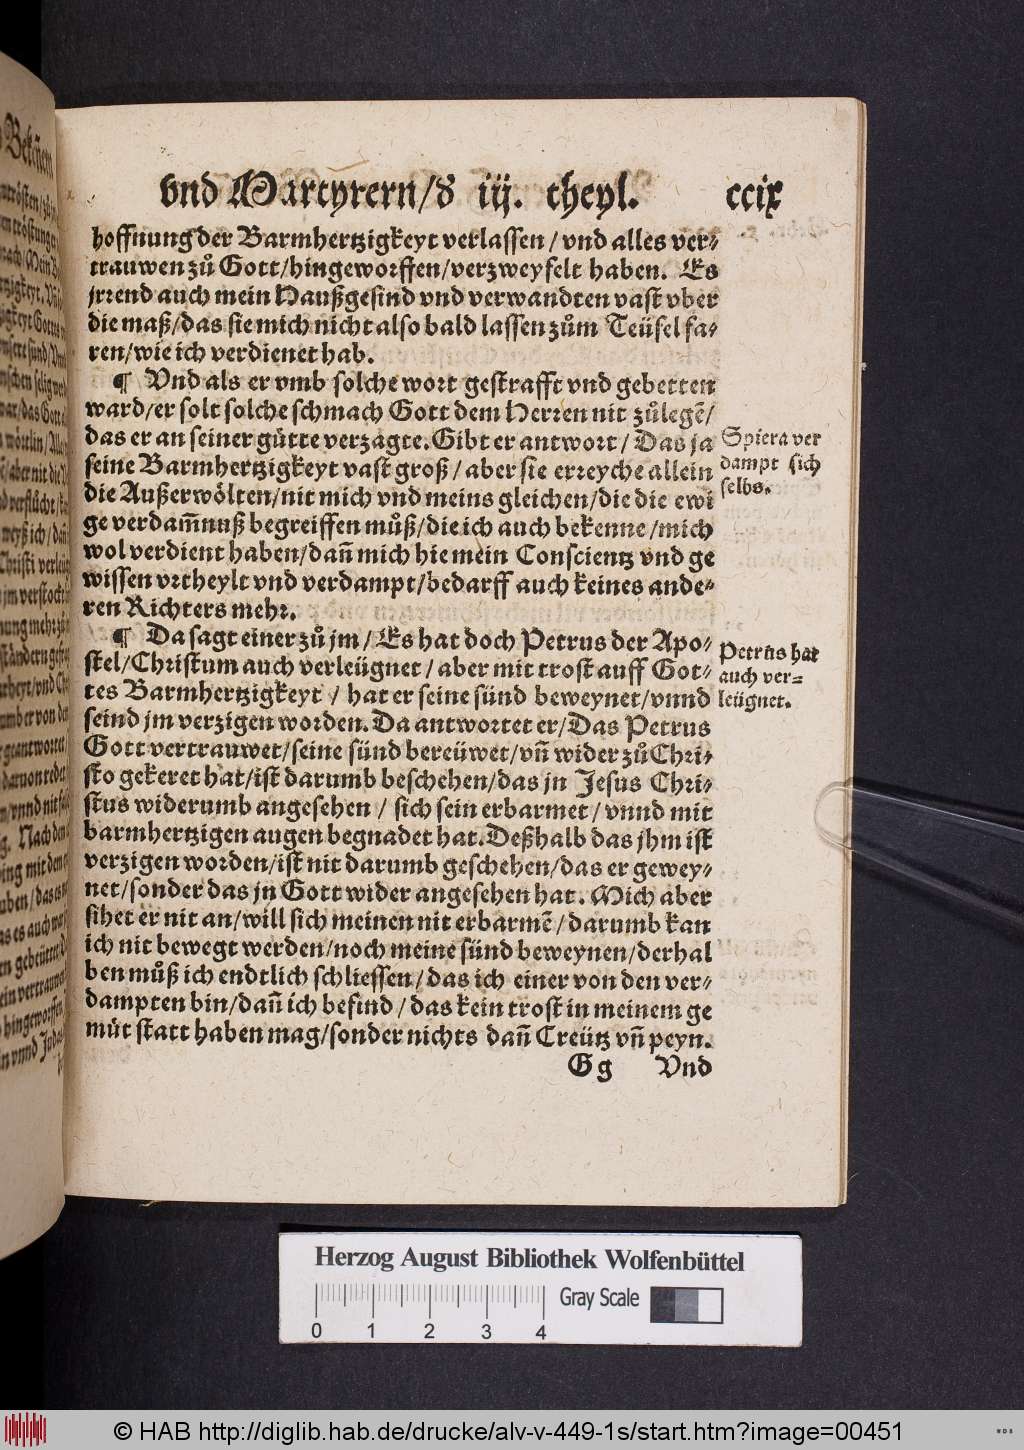 vnd Martyrern/d iij. theyl. ccix
hoffnung der Barmhertzigkeyt verlassen / vnd alles ver-
trauwen zů Gott/hingeworffen/verzweyfelt haben. Es
jrrend auch mein Haußgesind vnd verwandten vast vber
die maß/das sie mich nicht also bald lassen zům Teüfel fa-
ren/wie ich verdienet hab.
¶ Vnd als er vmb solche wort gestrafft vnd gebetten
ward/er solt solche schmach Gott dem Herren nit zůlegẽ/
das er an seiner gůtte verzagte. Gibt er antwort/ Das ja
seine Barmhertzigkeyt vast groß / aber sie erreyche allein
die Außerwölten/nit mich vnd meins gleichen/die die ewi
ge verdam̃nuß begreiffen můß/die ich auch bekenne/mich
wol verdient haben/dañ mich hie mein Conscientz vnd ge
wissen vrtheylt vnd verdampt/bedarff auch keines ande-
ren Richters mehr.
Spiera ver
dampt sich
selbs.
¶ Da sagt einer zů jm / Es hat doch Petrus der Apo-
stel/Christum auch verleügnet / aber mit trost auff Got-
tes Barmhertzigkeyt / hat er seine sünd beweynet/vnnd
seind jm verzigen worden. Da antwortet er/Das Petrus
Gott vertrauwet/seine sünd bereüwet/vñ wider zů Chri-
sto gekeret hat/ist darumb beschehen/das jn Jesus Chri-
stus widerumb angesehen / sich sein erbarmet / vnnd mit
barmhertzigen augen begnadet hat. Deßhalb das jhm ist
verzigen worden/ist nit darumb geschehen/das er gewey-
net/sonder das jn Gott wider angesehen hat. Mich aber
sihet er nit an/will sich meinen nit erbarmẽ/darumb kan
ich nit bewegt werden/noch meine sünd beweynen/derhal
ben můß ich endtlich schliessen/das ich einer von den ver-
dampten bin/dañ ich befind / das kein trost in meinem ge
můt statt haben mag/sonder nichts dañ Creütz vñ peyn.
Petrus hat
auch ver-
leügnet.
Gg Vnd
Herzog August Bibliothek Wolfenbüttel
Gray Scale
0 1 2 3 4
© HAB http://diglib.hab.de/drucke/alv-v-449-1s/start.htm?image=00451